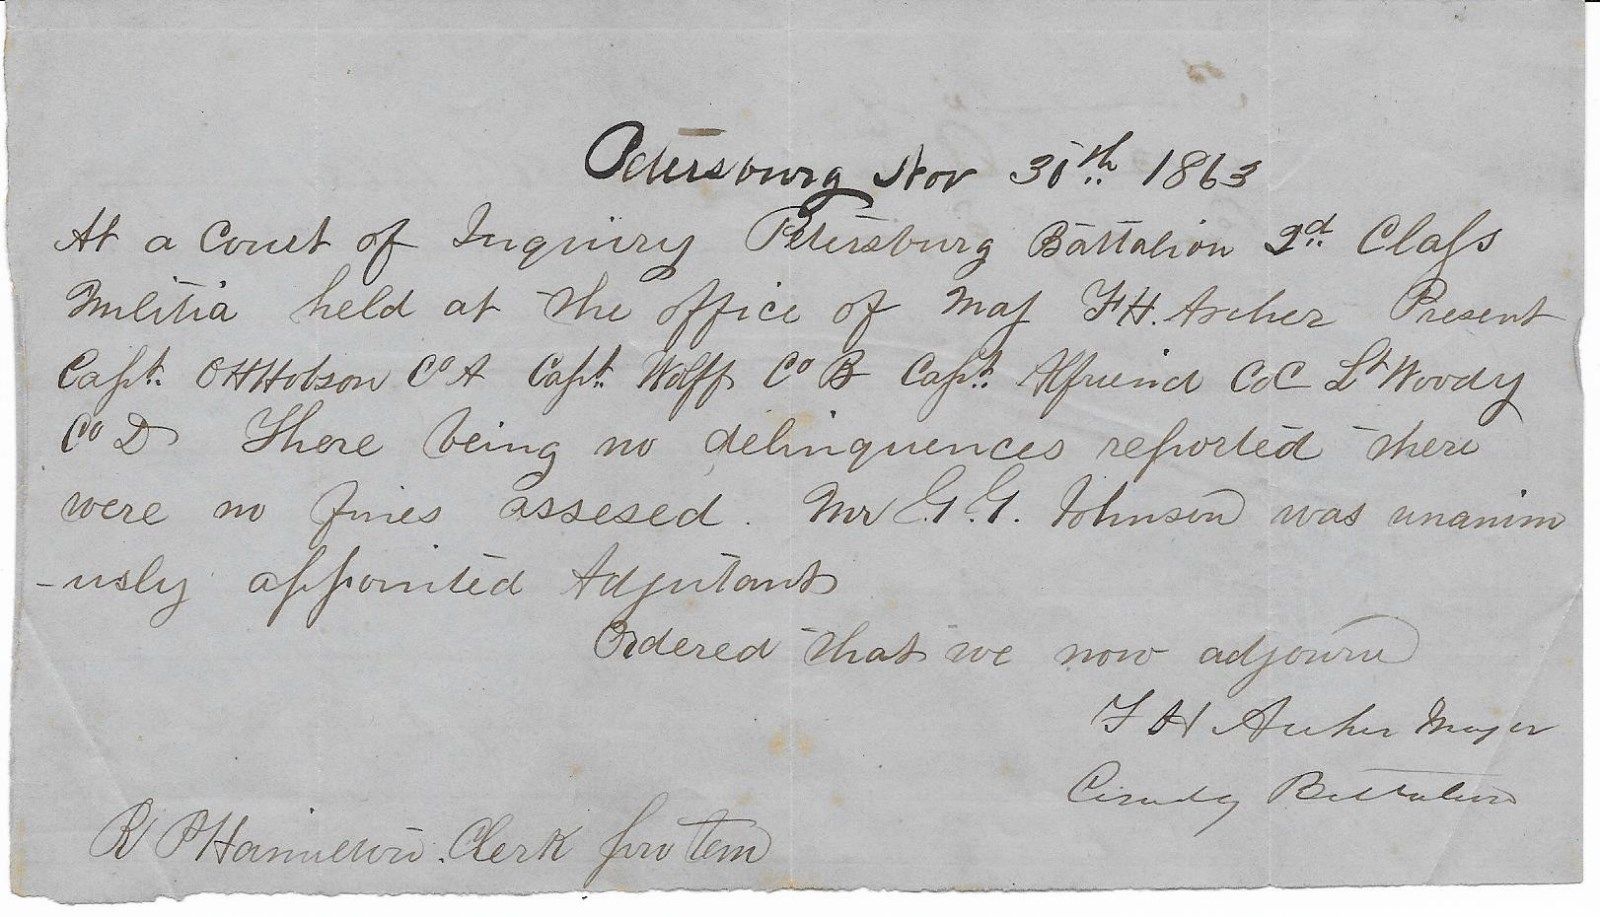 Petersburg Nov 30th 1863
At a Court of Inquiry Petersburg Battalion 2d Class
Militia held at the office of Maj F H. Archer Present
Capt. O H Hobson Co A Capt. Wolff Co B Capt. Alfriend Co C Lt Woody
Co D There being no delinquences reported there
were no fines assesed. Mr G. G. Johnson was unanim
-usly appointed Adjutant
Ordered that we now adjourn
F H Archer Major
Comdg Battalion
R P Clerk pro tem